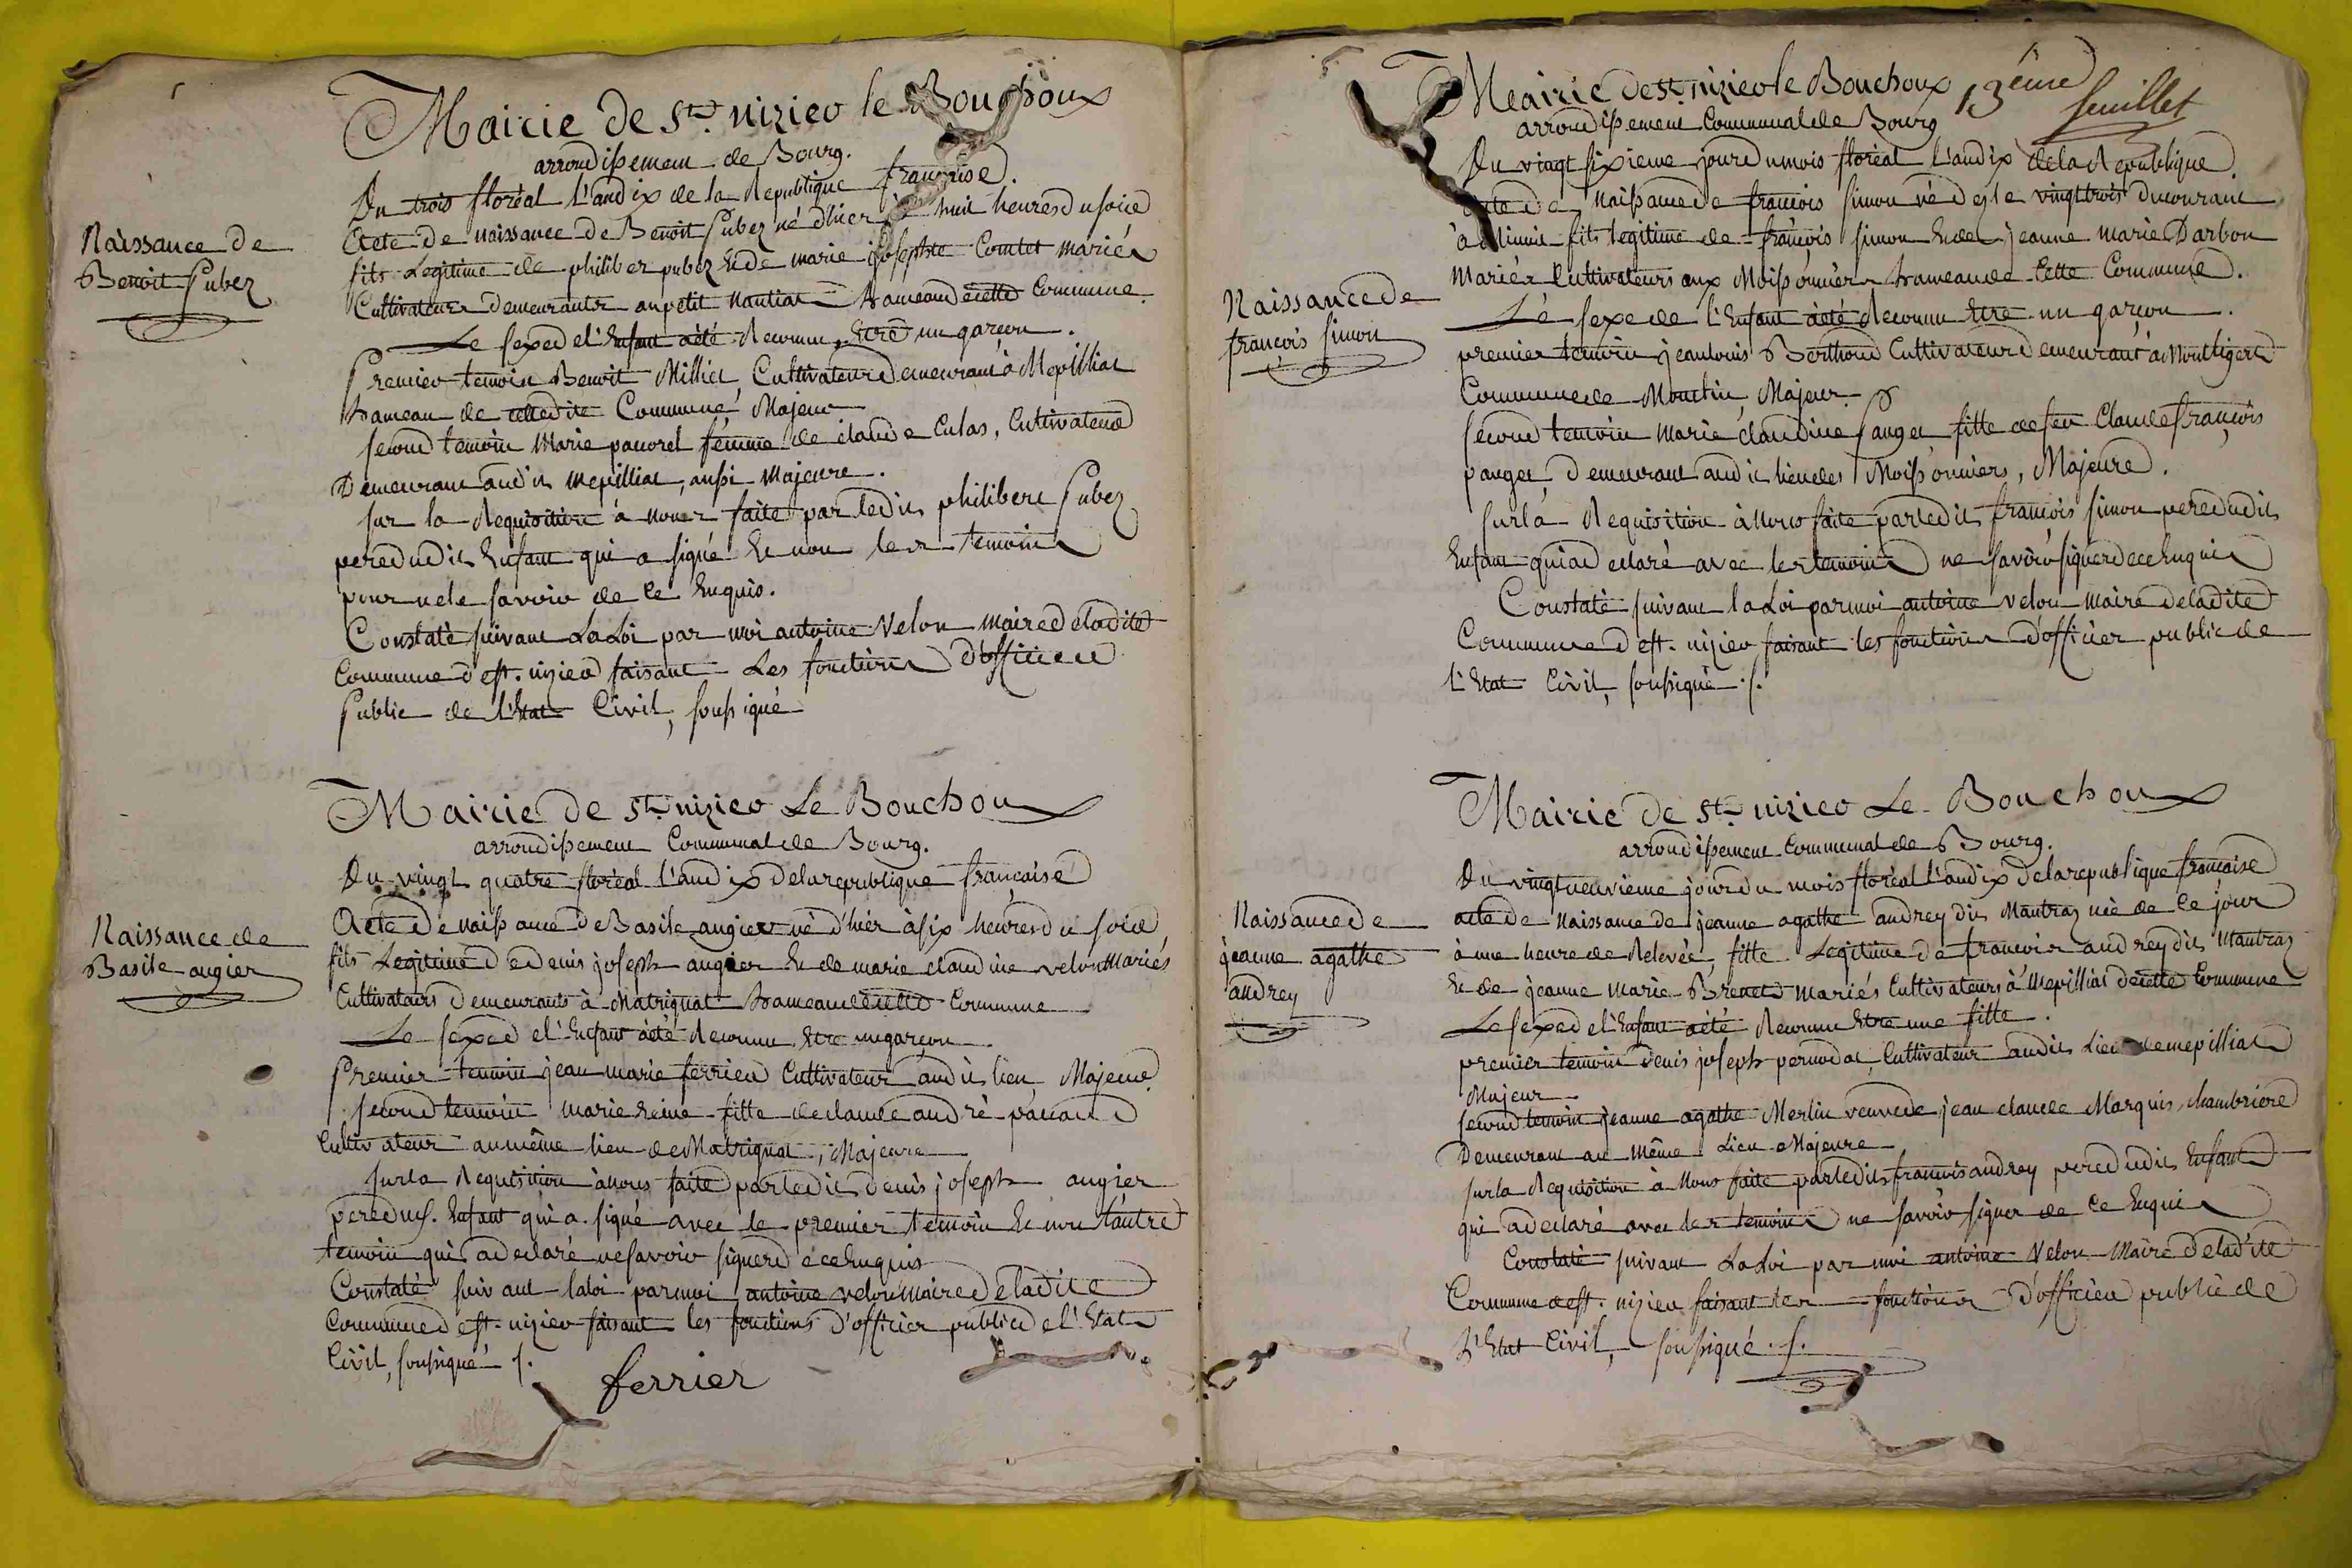 Mairie de St. nizier le Bouchoux
arrondissement de Bourg.
Du trois floréal l'an dix de la Republique française.
Naissance de
Benoit Pubez
Acte de naissance de Benoit Pubez né d'hier à huit heures du soir
fils Legitime de philiber pubez Et de marie josephte Comtet mariés
Cultivateurs demeurants au petit nantiat hameau de cette Commune.
Le sexe de l'Enfant a été Reconnu Etre un garçon.
Premier temoin Benoit Milliet Cultivateur demeurant à Mepilliat
hameau de cettedite Commune, Majeur
second temoin Marie pauvret femme de claude Culas, Cultivateur
Demeurant audit mepilliat, aussi Majeure.
sur la Requisition à nous faite par ledit philibert Pubez
pere dudit Enfant qui a signé Et non les temoins
pour ne le savoir de ce Enquis.
Constaté suivant La Loi par moi antoine Velon maire de ladite
Commune de st. nizier faisant Les fonctions d'officier
Public de l'Etat Civil, soussigné
Mairie de St. nizier Le Bouchoux
arrondissement Communal de Bourg.
Du vingt quatre floréal l'an dix de la republique française
Naissance de
Basile augier
Acte de naissance de Basile augier né d'hier à six heures du soir,
fils Legitime de denis joseph augier Et de marie claudine velon Mariés
Cultivateurs demeurants à Matrignat hameau de cette Commune
Le sexe de l'Enfant a été Reconnu Etre un garçon
Premier temoin jean marie ferrier Cultivateur audit lieu Majeur.
second temoin marie reine fille de claude andré
Cultivateur au même lieu de Matrignat, Majeure
sur la Requisition à nous faite par ledit denis joseph augier
pere dud. Enfant qui a signé avec le premier temoin Et non l'autre
temoin qui a declaré ne savoir signer de ce Enquis
Constaté suivant la loi par moi antoine velon maire de ladite
Commune de st. nizier faisant les fonctions d'officier public de l'Etat
Civil, soussigné ./.
ferrier
13eme
feuillet
Mairie de St. nizier le Bouchoux
arrondissement Communal de Bourg
Du vingt sixieme jour du mois floréal l'an dix de la Republique.
Acte de Naissance de francois simon né des le vingt trois du courant
à Minuit fils legitime de françois simon Et de jeanne marie Darbon
Mariés Cultivateurs aux Moissonniers hameau de Cette Commune.
Naissance de
françois simon
Le sexe de l'Enfant a été Reconnu Etre un garçon.
premier temoin jean louis Berthoud Cultivateur demeurant à Montligert
Commune de Moutin, Majeur.
second temoin marie claudine panget fille de feu Claude françois
panget, demeurant audit lieu des Moissonniers, Majeure.
sur la Requisition à Nous faite par ledit francois simon pere dudit
Enfant qui a declaré avec les temoins ne savoir signer de ce Enquis
Constaté suivant la Loi par moi antoine velon maire de ladite
Commune de st. nizier faisant les fonctions d'officier public de
l'Etat Civil, soussigné ./.
Mairie de St. nizier Le Bouchoux
arrondissement Communal de Bourg.
Du vingt neuvieme jour du mois floréal l'an dix de la republique française
Naissance de
jeanne agathe
audrey
acte de naissance de jeanne agathe audrey dit Mantraz née de ce jour
à une heure de Relevée, fille Legitime de francois audrey dit Mantraz
Et de jeanne marie Brenet mariés Cultivateurs à Mepilliat de cette Commune
Le sexe de l'Enfant a été Reconnu Etre une fille.
premier temoin denis joseph pernodat, Cultivateur audit Lieu de mepilliat
Majeur
second temoin jeanne agathe Merlin veuve de jean claude Marquis, chambriere
Demeurant au même Lieu Majeure
sur la Requisition à Nous faite par ledit francois audrey pere dudit Enfant
qui a declaré avec les temoins ne savoir signer de ce Enquis
Constaté suivant La Loi par moi antoine Velon Maire de ladite
Commune de st. nizier faisant les fonctions d'officier public de
l'Etat Civil, soussigné ./.